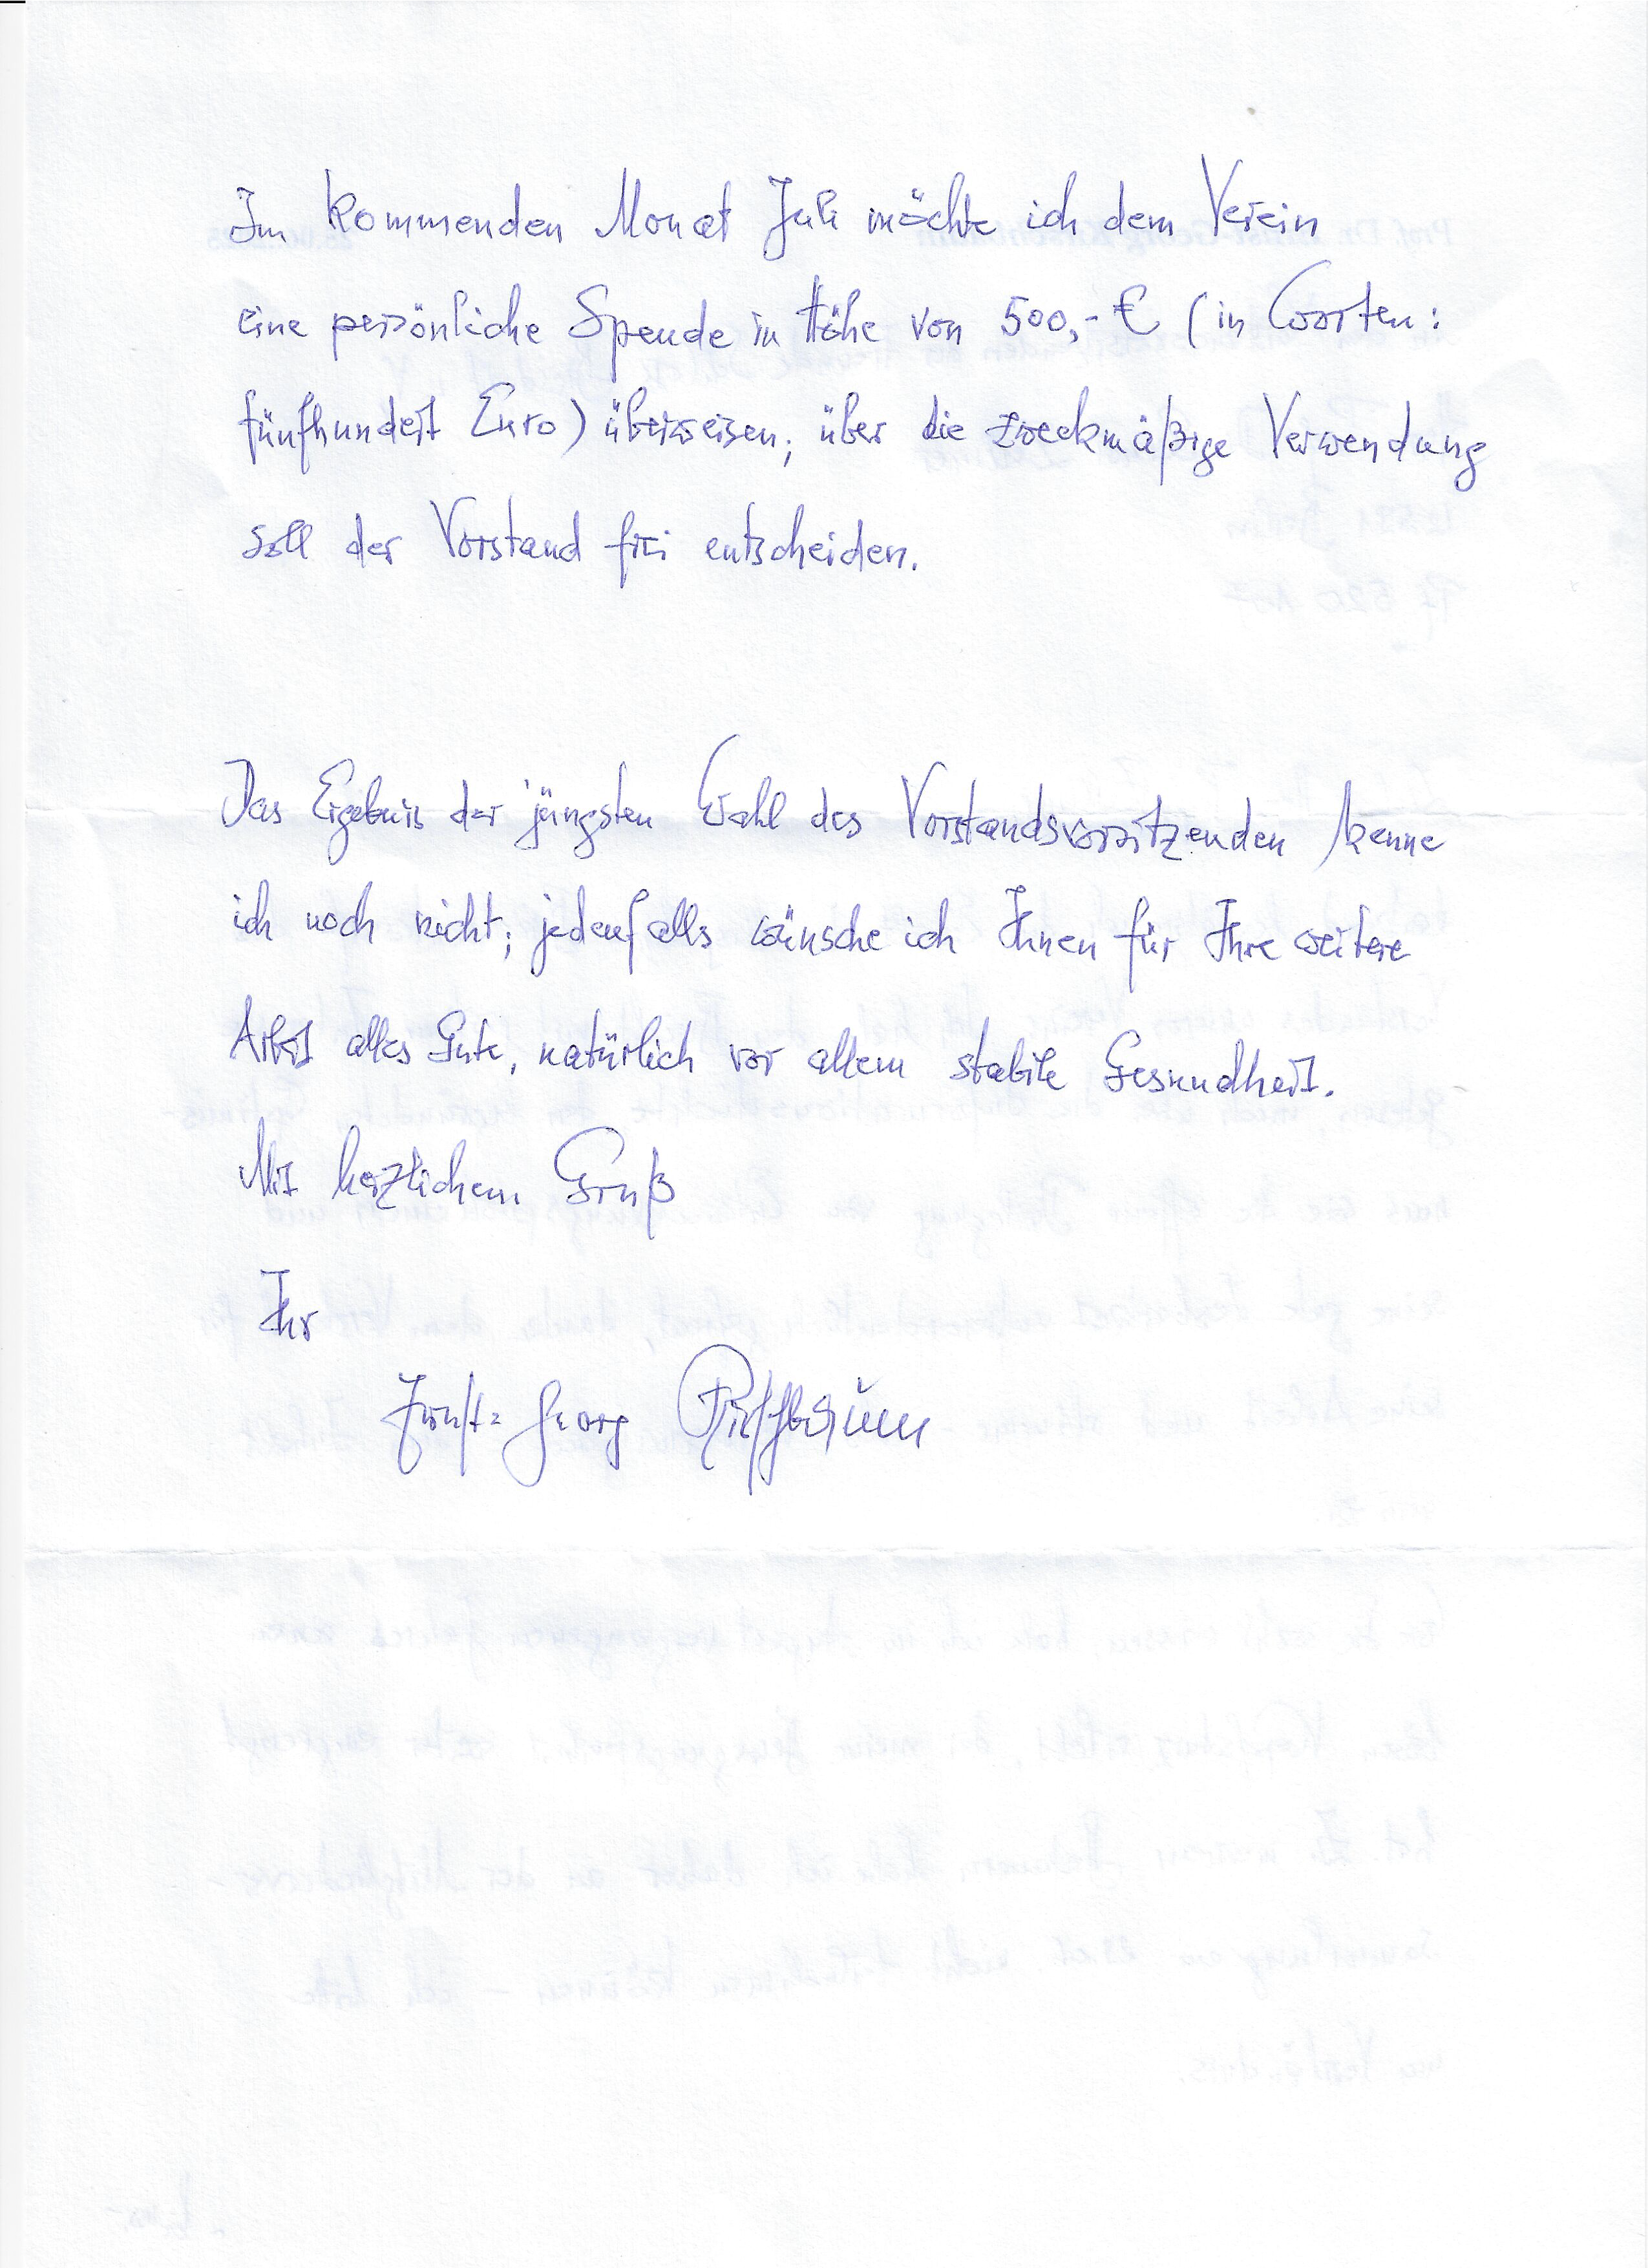 Im kommenden Monat Juli möchte ich dem Verein
eine persönliche Spende in Höhe von 500,- € (in Worten:
fünfhundert Euro) überweisen; über die zweckmäßige Verwendung
soll der Vorstand frei entscheiden.
Das Ergebnis der jüngsten Wahl des Vorstandsvorsitzenden kenne
ich noch nicht; jedenfalls wünsche ich Ihnen für Ihre weitere
Arbeit alles Gute, natürlich vor allem stabile Gesundheit.
Mit herzlichem Gruß
Ihr
Ernst-Georg